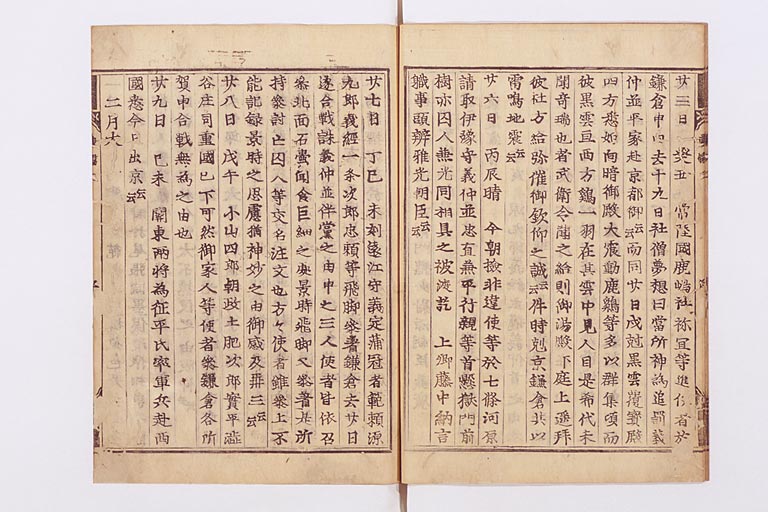 廿三日 癸丑 常陸國鹿嶋社祢宜等進使者於
鎌倉申曰去十九日社僧夢想曰當所神為追罰義
仲並平家赴京都御云々而同廿日戌尅黒雲覆寶殿
四方悉如向暗御殿大震動鹿鷄等多以群集頃而
彼黒雲亘西方鷄一羽在其雲中見人目是希代未
聞奇瑞也者武衛令聞之給則御湯殿下庭上遥拜
彼社方給弥催御欽仰之誠云々件時尅京鎌倉共以
雷鳴地震云々
廿六日 丙辰晴 今朝撿非違使等於七條河原
請取伊豫守義仲並忠直兼平行親等首懸獄門前
樹亦囚人兼光同相具之被渡訖 上卿藤中納言
職事頭辨雅光朝臣云々
廿七日 丁巳 未刻遠江守義定蒲冠者範頼源
九郎義經一条次郎忠頼等飛脚參着鎌倉去廿日
遂合戰誅義仲並伴黨之由申之三人使者皆依召
參北面石壺聞食巨細之處景時飛脚又參著是所
持參討亡囚人等交名注文也方々使者雖參上不
能記録景時之思慮猶神妙之由御感及再三云々
廿八日 戊午 小山四郎朝政土肥次郎實平澁
谷庄司重國已下可然御家人等使者參鎌倉各所
賀申合戰無為之由也
廿九日 己未 關東兩將為征平氏率軍兵赴西
國悉今日出京云々
二月大